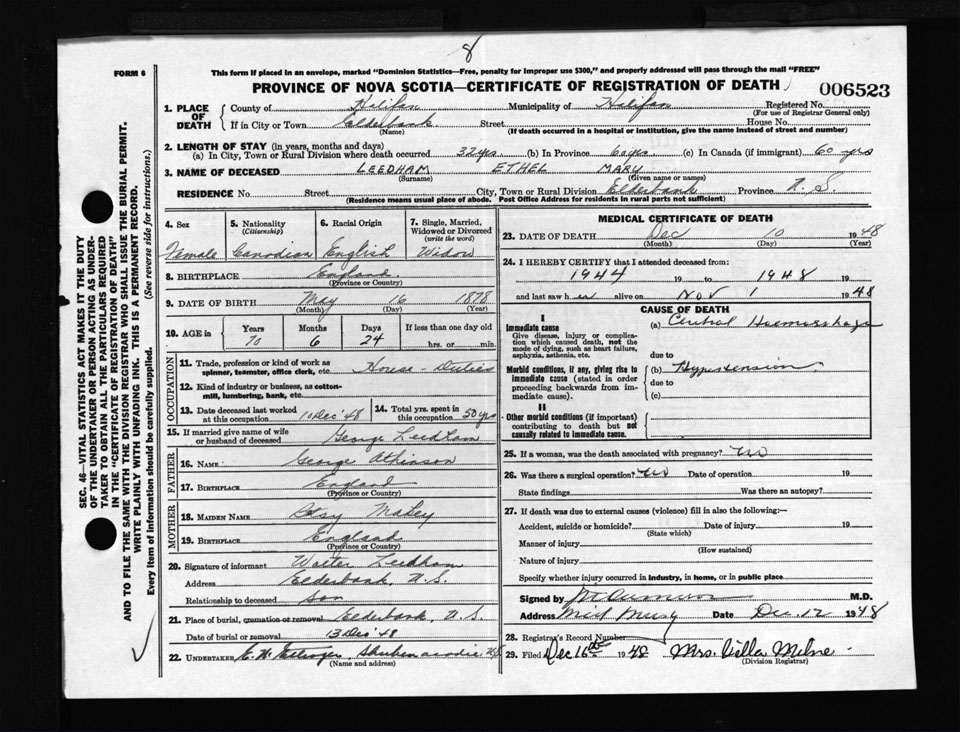 8
FORM 6
This form if placed in an envelope, marked "Dominion Statistics—Free, penalty for improper use $300," and properly addressed will pass through the mail "FREE"
PROVINCE OF NOVA SCOTIA—CERTIFICATE OF REGISTRATION OF DEATH
006523
1. PLACE OF DEATH
County of Halifax Municipality of Halifax Registered No.
(For use of Registrar General only)
If in City or Town Elderbank Street House No.
(Name) (If death occurred in a hospital or institution, give the name instead of street and number)
2. LENGTH OF STAY (in years, months and days)
(a) In City, Town or Rural Division where death occurred 32 yrs. (b) In Province 60 yrs. (c) In Canada (if immigrant) 60 yrs
3. NAME OF DECEASED LEEDHAM ETHEL MARY
(Surname) (Given name or names)
RESIDENCE No. Street City, Town or Rural Division Elderbank Province N. S.
(Residence means usual place of abode. Post Office Address for residents in rural parts not sufficient)
4. Sex
Female
5. Nationality
(Citizenship)
Canadian
6. Racial Origin
English
7. Single, Married, Widowed or Divorced
(write the word)
Widow
8. BIRTHPLACE England
(Province or Country)
9. DATE OF BIRTH May 16 1878
(Month) (Day) (Year)
10. AGE in Years Months Days If less than one day old
70 6 24 hrs. or min.
OCCUPATION
11. Trade, profession or kind of work as spinner, teamster, office clerk, etc. House-Duties
12. Kind of industry or business, as cotton-mill, lumbering, bank, etc.
13. Date deceased last worked at this occupation 10 Dec '48
14. Total yrs. spent in this occupation 50 yrs
15. If married give name of wife or husband of deceased George Leedham
FATHER
16. NAME George Atkinson
17. BIRTHPLACE England
(Province or Country)
MOTHER
18. MAIDEN NAME Betsy
19. BIRTHPLACE England
(Province or Country)
20. Signature of informant Walter Leedham
Address Elderbank, N. S.
Relationship to deceased Son
21. Place of burial, cremation or removal Elderbank, N. S.
Date of burial or removal 13 Dec '48
22. UNDERTAKER Shubenacadie, N.S.
(Name and address)
MEDICAL CERTIFICATE OF DEATH
23. DATE OF DEATH Dec 10 1948
(Month) (Day) (Year)
24. I HEREBY CERTIFY that I attended deceased from:
1944 19 to 1948 19
and last saw her alive on Nov 1 1948
CAUSE OF DEATH
I
Immediate cause
Give disease, injury or complication which caused death, not the mode of dying, such as heart failure, asphyxia, asthenia, etc.
(a) Cerebral Haemorrhage
due to
Morbid conditions, if any, giving rise to immediate cause (stated in order proceeding backwards from immediate cause).
(b) Hypertension
due to
(c)
II
Other morbid conditions (if important) contributing to death but not causally related to immediate cause.
25. If a woman, was the death associated with pregnancy? No
26. Was there a surgical operation? No Date of operation 19
State findings Was there an autopsy?
27. If death was due to external causes (violence) fill in also the following:—
Accident, suicide or homicide? Date of injury 19
(State which)
Manner of injury
(How sustained)
Nature of injury
Specify whether injury occurred in industry, in home, or in public place
Signed by M.D.
Address Mid Musq Date Dec. 12 1948
28. Registrar's Record Number
29. Filed Dec 16th 1948 Mrs. Milne
(Division Registrar)
SEC. 46—VITAL STATISTICS ACT MAKES IT THE DUTY
OF THE UNDERTAKER OR PERSON ACTING AS UNDERTAKER TO OBTAIN ALL THE PARTICULARS REQUIRED
IN THE "CERTIFICATE OF REGISTRATION OF DEATH"
AND TO FILE THE SAME WITH THE DIVISION REGISTRAR WHO SHALL ISSUE THE BURIAL PERMIT.
WRITE PLAINLY WITH UNFADING INK. THIS IS A PERMANENT RECORD.
Every item of information should be carefully supplied. (See reverse side for instructions.)